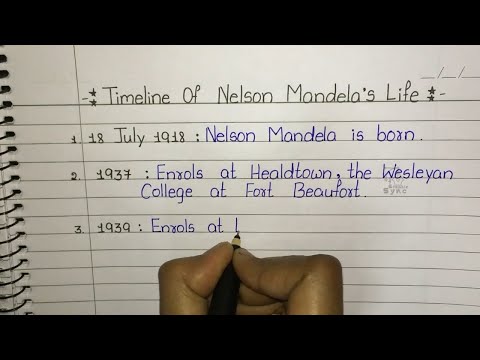 -⁑ Timeline Of Nelson Mandela's Life ⁑-
__/__/__
1. 18 July 1918 : Nelson Mandela is born.
2. 1937 : Enrols at Healdtown, the Wesleyan
College at Fort Beaufort.
3. 1939 : Enrols at